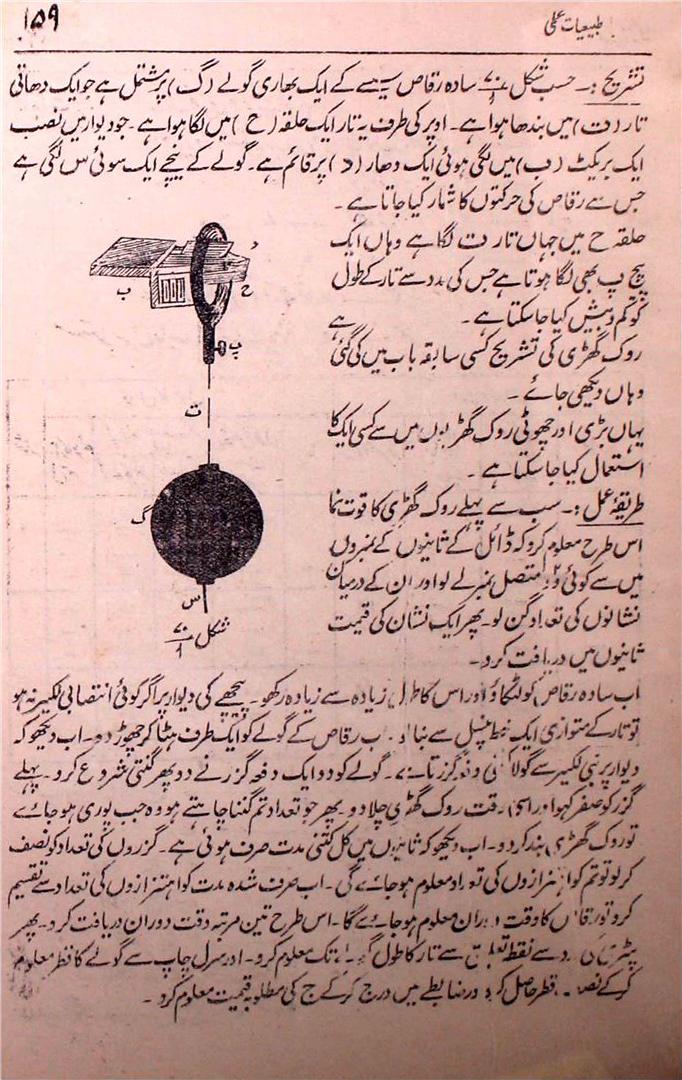 ۱۵۹
طبیعیات عملی
تشریح :۔ حسب شکل ۷۰/۱ سادہ رقاص سیسے کے ایک بھاری گولے (گ) پر مشتمل ہے جو ایک دھاتی
تار (ت) میں بندھا ہوا ہے۔ اوپر کی طرف یہ تار ایک حلقہ (ح) میں لگا ہوا ہے۔ جو دیوار میں نصب
ایک بریکٹ (ب) میں لگی ہوئی ایک دھار (د) پر قائم ہے۔ گولے کے نیچے ایک سوئی س لگی ہے
جس سے رقاص کی حرکتوں کا شمار کیا جاتا ہے۔
حلقہ ح میں جہاں تار ت لگا ہے وہاں ایک
پیچ پ بھی لگا ہوتا ہے جس کی مدد سے تار کے طول
کو کم و بیش کیا جا سکتا ہے۔
روک گھڑی کی تشریح کسی سابقہ باب میں کی گئی ہے
وہاں دیکھی جائے۔
یہاں بڑی اور چھوٹی روک گھڑیوں میں سے کسی ایک کا
استعمال کیا جا سکتا ہے۔
طریقۂ عمل :۔ سب سے پہلے روک گھڑی کا قوت نما
اس طرح معلوم کرو کہ ڈائل کے ثانیوں کے نمبروں
میں سے کوئی دو متصل نمبر لے لو اور ان کے درمیان
نشانوں کی تعداد گن لو۔ پھر ایک نشان کی قیمت
ثانیوں میں دریافت کرو۔
د
ح
ب
پ
ت
گ
س
شکل ۷۰/۱
اب سادہ رقاص کو لٹکاؤ اور اس کا طول زیادہ سے زیادہ رکھو۔ پیچھے کی دیوار پر اگر کوئی انتصابی لکیر نہ ہو
تو تار کے متوازی ایک خط پنسل سے بنا لو۔ اب رقاص کے گولے کو ایک طرف ہٹا کر چھوڑ دو۔ اب دیکھو کہ
دیوار پر بنی لکیر سے گولا کتنی دفعہ گزرتا ہے۔ گولے کو دو ایک دفعہ گزرنے دو پھر گنتی شروع کرو۔ پہلے
گزر کو صفر کہو اور اسی وقت روک گھڑی چلا دو۔ پھر جو تعداد تم گننا چاہتے ہو وہ جب پوری ہو جائے
تو روک گھڑی بند کر دو۔ اب دیکھو کہ ثانیوں میں کل کتنی مدت صرف ہوئی ہے۔ گزروں کی تعداد کو نصف
کر لو تو تم کو اہتزازوں کی تعداد معلوم ہو جائے گی۔ اب صرف شدہ مدت کو اہتزازوں کی تعداد سے تقسیم
کرو تو رقاص کا وقت دوران معلوم ہو جائے گا۔ اس طرح تین مرتبہ وقت دوران دریافت کرو۔ پھر
پٹری کی مدد سے نقطہ تعلیق سے تار کا طول گولے تک معلوم کرو۔ اور سرل چاپ سے گولے کا قطر معلوم
کر کے نصف قطر حاصل کرو اور ضابطے میں درج کر کے ج کی مطلوبہ قیمت معلوم کرو۔